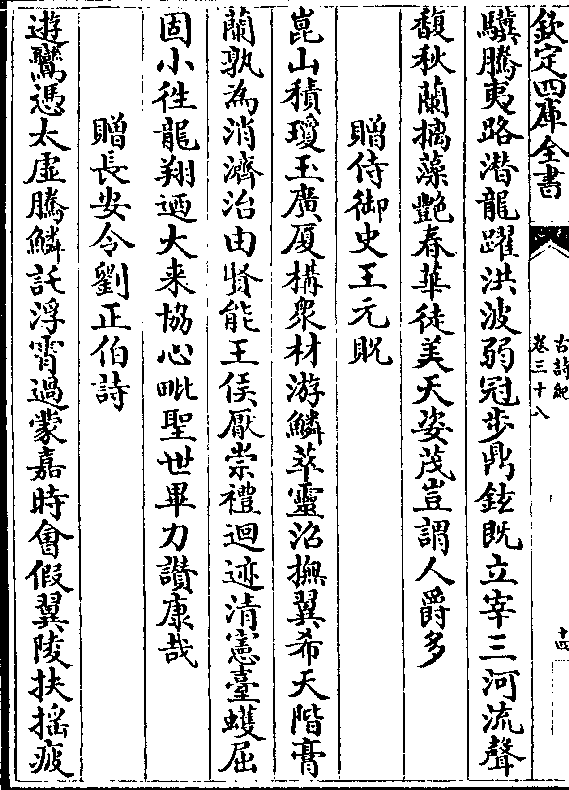 欽定四庫全書
古詩紀
卷三十八
十四
驥騰夷路潛龍躍洪波弱冠步鼎鉉既立宰三河流聲
馥秋蘭摛藻艷春華徒美天姿茂豈謂人爵多
贈侍御史王元貺
崑山積瓊玉廣厦構衆材游鱗萃靈沼撫翼希天階膏
蘭孰為消濟治由賢能王侯厭崇禮迴迹清憲臺蠖屈
固小往龍翔迺大来協心毗聖世畢力讚康哉
贈長安令劉正伯詩
遊鸞憑太虚騰鱗託浮霄過蒙嘉時會假翼陵扶揺疲